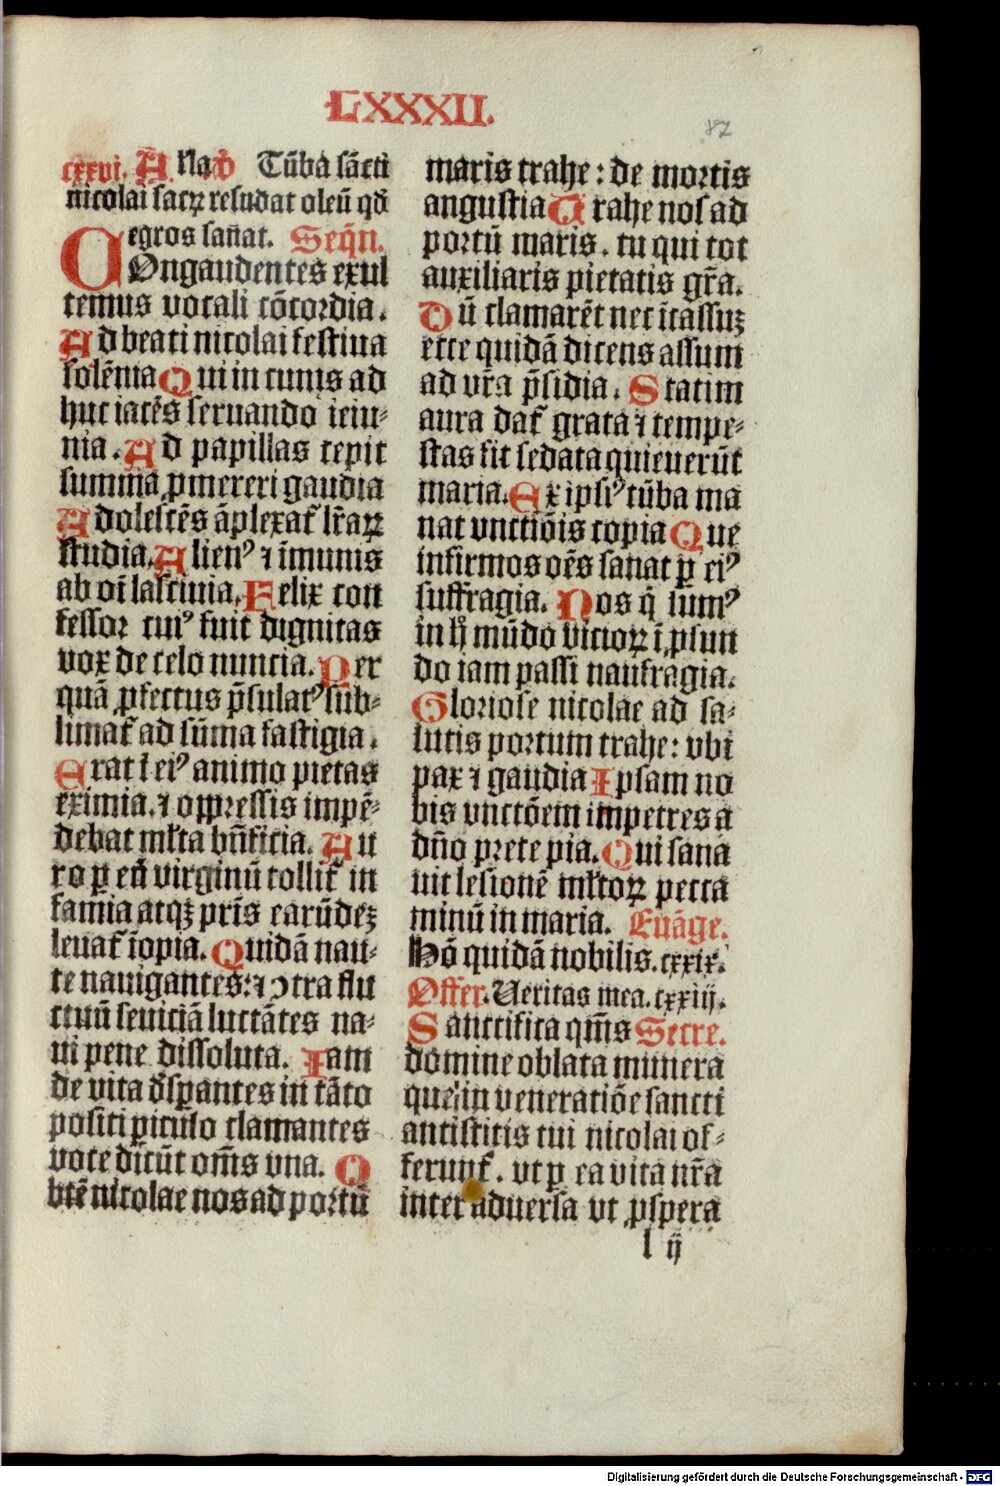 LXXXII.
87
cxxvi. A. Na ꝟ Tũba sãcti
nicolai sacꝝ resudat oleũ qđ
egros sanat. Seq̃n.
COngaudentes exul
temus vocali cõcordia.
Ad beati nicolai festiua
solẽnia Qui in cunis ad
huc iacẽs seruando ieiu⸗
nia. Ad papillas cepit
summa ꝓmereri gaudia
Adolescẽs ãplexat᷑ lr̃aꝝ
studia. Alienꝰ ⁊ ĩmunis
ab oĩ lasciuia. Felix con
fessor cuiꝰ fuit dignitas
vox de celo nuncia. Per
quã ꝓfectus p̃sulatꝰ sub⸗
limat᷑ ad sũma fastigia.
Erat ĩ eiꝰ animo pietas
eximia. ⁊ oppressis impẽ⸗
debat ml̃ta bñficia. Au
ro ꝑ eũ virginũ tollit᷑ in
famia atqꝫ pr̃is earũdeꝫ
leuat᷑ ĩopia. Quidã nau⸗
te nauigantes: ⁊ ↄtra flu
ctuũ seuiciã luctãtes na⸗
ui pene dissoluta. Iam
de vita đsꝑantes in tãto
positi ꝑiculo clamantes
voce dicũt om̃s vna. O
btẽ nicolae nos ad portũ
maris trahe: de mortis
angustia Trahe nos ad
portũ maris. tu qui tot
auxiliaris pietatis gr̃a.
Dũ clamarẽt nec ĩcassuꝫ
ecce quidã dicens assum
ad vr̃a p̃sidia. Statim
aura dat᷑ grata ⁊ tempe⸗
stas fit sedata quieuerũt
maria. Ex ipsiꝰ tũba ma
nat vnctiõis copia Que
infirmos oẽs sanat ꝑ eiꝰ
suffragia. Nos q̃ sumꝰ
in h̃ mũdo vicioꝝ ĩ ꝓfun
do iam passi naufragia.
Gloriose nicolae ad sa⸗
lutis portum trahe: vbi
pax ⁊ gaudia Ipsam no
bis vnctõem impetres a
dño prece pia. Qui sana
uit lesionẽ ml̃toꝝ pecca
minũ in maria. Euãge.
Hõ quidã nobilis. cxxix.
Offer. Veritas mea. cxxiij.
Sanctifica qm̃s Secre.
domine oblata munera
que in veneratiõe sancti
antistitis tui nicolai of⸗
ferunt᷑. vt ꝑ ea vita nr̃a
inter aduersa vt ꝓspera
l ij
Digitalisierung gefördert durch die Deutsche Forschungsgemeinschaft - DFG